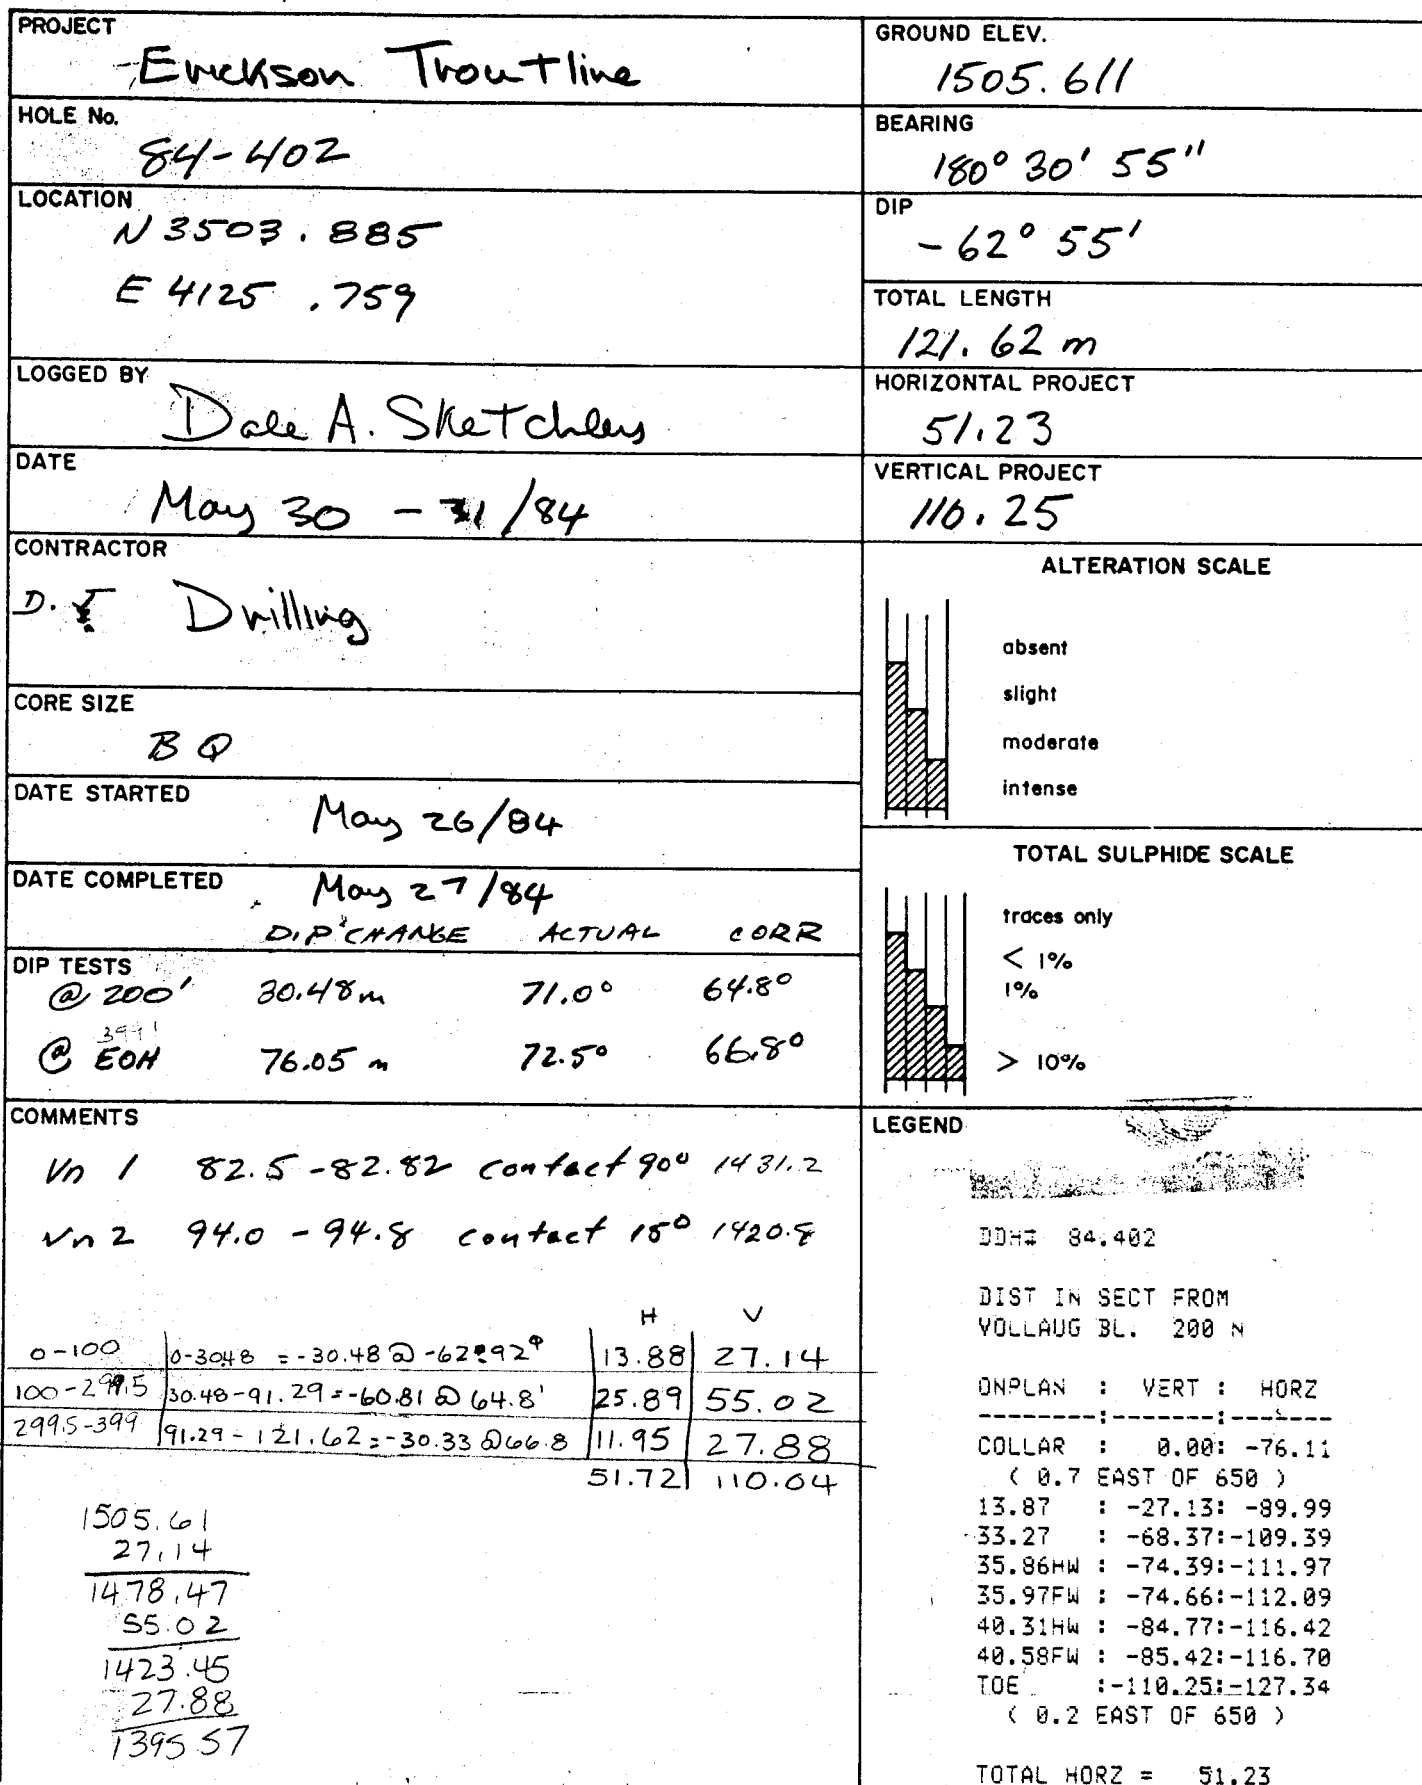 PROJECT
Erickson Troutline
HOLE No.
84-402
LOCATION
N 3503.885
E 4125.759
LOGGED BY
Dale A. Sketchley
DATE
May 30 - 31/84
CONTRACTOR
D. Drilling
CORE SIZE
BQ
DATE STARTED
May 26/84
DATE COMPLETED
May 27/84
DIP CHANGE ACTUAL CORR
DIP TESTS
@ 200' 30.48m 71.0° 64.8°
399'
@ EOH 76.05 m 72.5° 66.8°
COMMENTS
Vn 1 82.5-82.82 contact 90° 1431.2
Vn 2 94.0 - 94.8 contact 15° 1420.8
H V
0-100 0-30.48 = -30.48 @ -62.92° 13.88 27.14
100-299.5 30.48-91.29 = -60.81 @ 64.8' 25.89 55.02
299.5-399 91.29-121.62 = -30.33 @ 66.8 11.95 27.88
51.72 110.04
1505.61
27.14
1478.47
55.02
1423.45
27.88
1395.57
GROUND ELEV.
1505.611
BEARING
180° 30' 55"
DIP
-62° 55'
TOTAL LENGTH
121.62 m
HORIZONTAL PROJECT
51.23
VERTICAL PROJECT
110.25
ALTERATION SCALE
absent
slight
moderate
intense
TOTAL SULPHIDE SCALE
traces only
< 1%
1%
> 10%
LEGEND
DDH# 84.402
DIST IN SECT FROM
VOLLAUG BL. 200 N
ONPLAN : VERT : HORZ
--------:-------:-------
COLLAR : 0.00: -76.11
( 0.7 EAST OF 650 )
13.87 : -27.13: -89.99
33.27 : -68.37:-109.39
35.86HW : -74.39:-111.97
35.97FW : -74.66:-112.09
40.31HW : -84.77:-116.42
40.58FW : -85.42:-116.70
TOE :-110.25:-127.34
( 0.2 EAST OF 650 )
TOTAL HORZ = 51.23